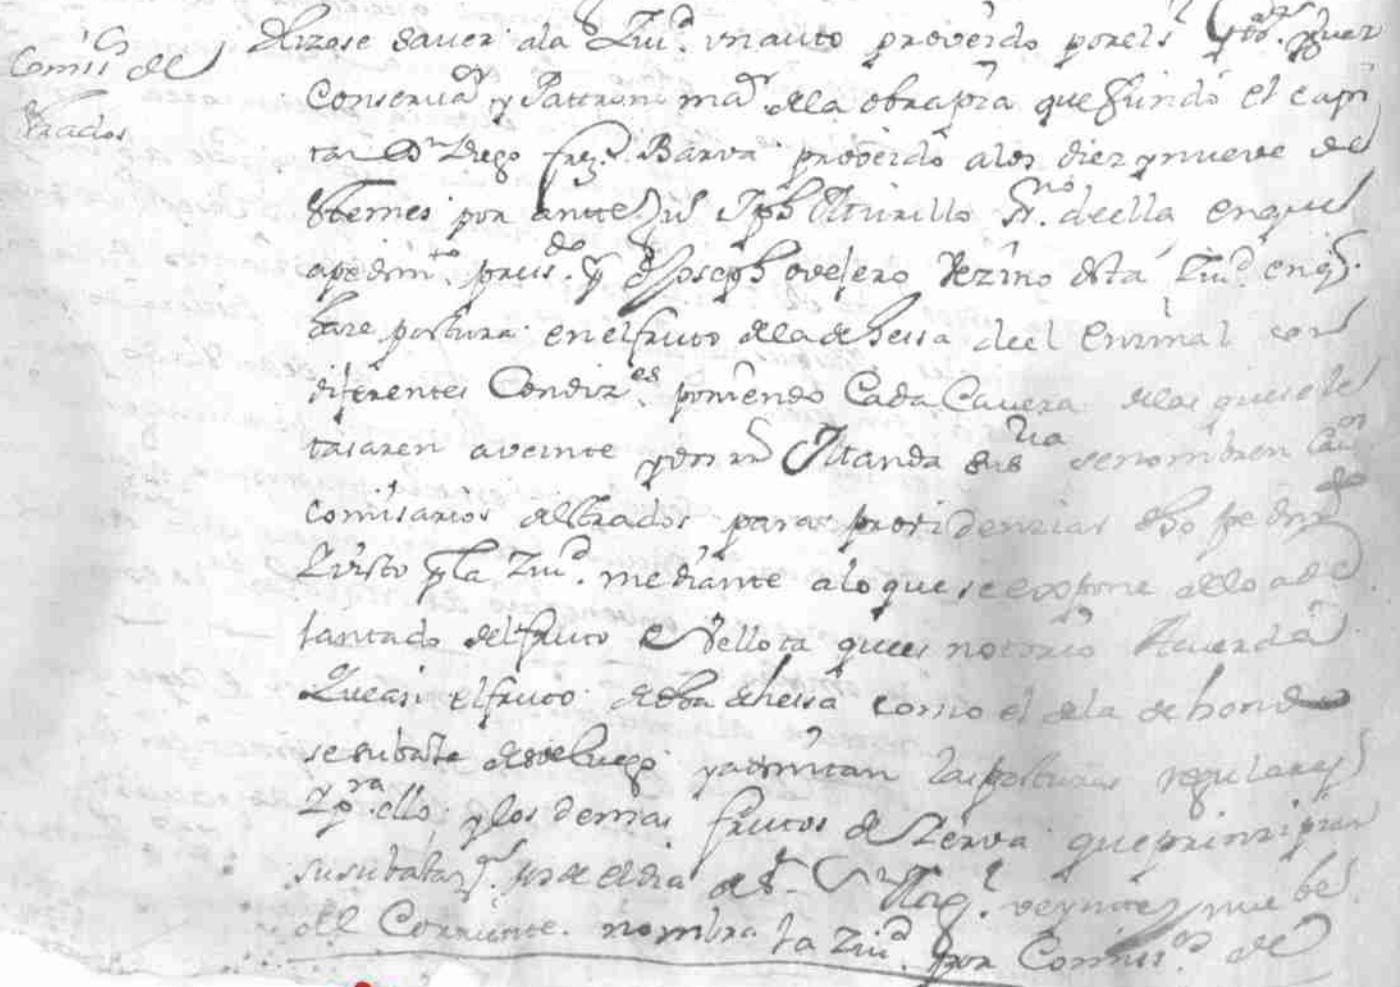 Comis.os de
Prados
Hizose saver a la Ziu.d un auto proveido por el s.r
Conserua.or y Pattron della obrapia que fundo el capi
tan D.n Diego frz. Barva proveido a los diez y nueve de
este mes por ante Jph Murillo ss.no de ella en que
a pedim.to press.do p.r D.n Joseph ovejero Vezino desta Ziu.d en q.
haze postura en el fruto de la dehessa de el Enzinal con
diferentes Condiz.es poniendo Cada Caveza de las que se le
tasaren a veinte y dos rr.s Manda su s.ria se nombren Cau.os
comisarios de Prados para providenziar dho pedim.to
Visto p.r la Ziu.d mediante a lo que se expone de lo ade
lantado del fruto de Vellota que es notorio Acuerda
que assi el fruto de dha dehessa como el de la de
se subaste desde luego y admitan las posturas regulares
Y p.ra ello y los demas frutos de Yerva que prinzipian
su subasta desde el dia de s.n Mig.l veynte y nuebe
del Corriente nombra la Ziu.d por Comis.os de